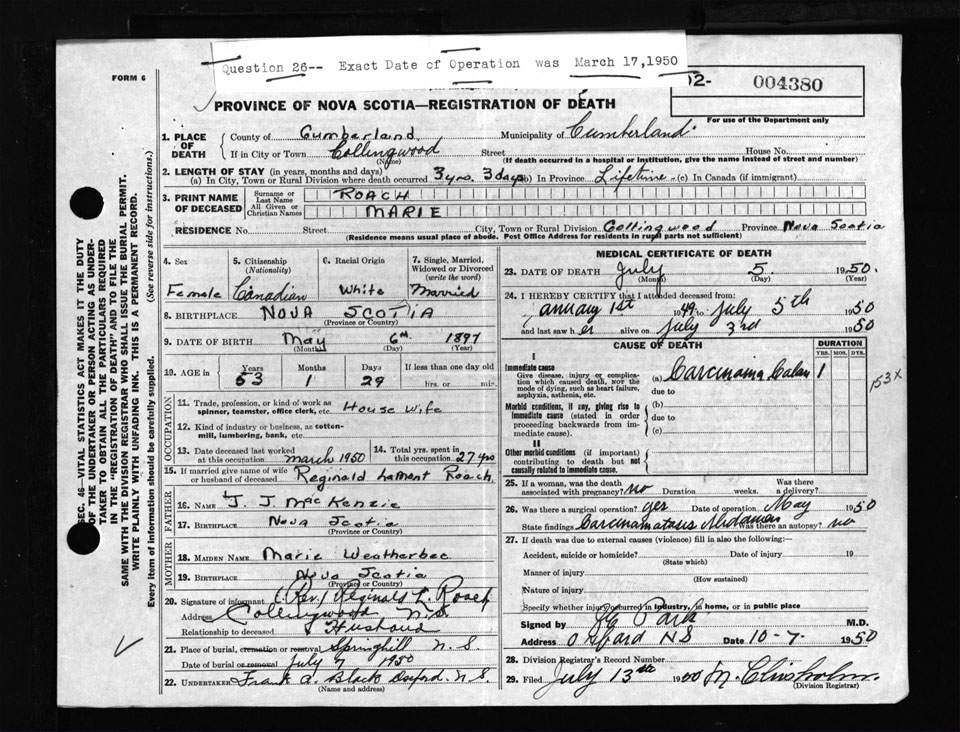 Question 26-- Exact Date of Operation was March 17,1950
FORM 6
02- 004380
PROVINCE OF NOVA SCOTIA—REGISTRATION OF DEATH
For use of the Department only
1. PLACE OF DEATH
County of Cumberland Municipality of Cumberland
If in City or Town Collingwood Street House No.
(Name) (If death occurred in a hospital or institution, give the name instead of street and number)
2. LENGTH OF STAY (in years, months and days)
(a) In City, Town or Rural Division where death occurred 3 yrs. 3 days (b) In Province Lifetime (c) In Canada (if immigrant)
3. PRINT NAME OF DECEASED
Surname or Last Name ROACH
All Given or Christian Names MARIE
RESIDENCE No. Street City, Town or Rural Division Collingwood Province Nova Scotia
(Residence means usual place of abode. Post Office Address for residents in rural parts not sufficient)
4. Sex Female
5. Citizenship (Nationality) Canadian
6. Racial Origin White
7. Single, Married, Widowed or Divorced (write the word) Married
8. BIRTHPLACE NOVA SCOTIA
(Province or Country)
9. DATE OF BIRTH May 6th 1897
(Month) (Day) (Year)
10. AGE in Years Months Days If less than one day old
53 1 29 hrs. or min.
OCCUPATION
11. Trade, profession, or kind of work as spinner, teamster, office clerk, etc. House Wife
12. Kind of industry or business, as cotton-mill, lumbering, bank, etc.
13. Date deceased last worked at this occupation March 1950
14. Total yrs. spent in this occupation 27 yrs
15. If married give name of wife or husband of deceased Reginald Lament Roach
FATHER
16. NAME J. J. MacKenzie
17. BIRTHPLACE Nova Scotia
(Province or Country)
MOTHER
18. MAIDEN NAME Marie Weatherbee
19. BIRTHPLACE Nova Scotia
(Province or Country)
20. Signature of informant (Rev.) Reginald L. Roach
Address Collingwood N.S.
Relationship to deceased Husband
21. Place of burial, cremation or removal Springhill N.S.
Date of burial or removal July 7 1950
22. UNDERTAKER Frank A. Black Oxford. N.S.
(Name and address)
MEDICAL CERTIFICATE OF DEATH
23. DATE OF DEATH July 5. 1950.
(Month) (Day) (Year)
24. I HEREBY CERTIFY that I attended deceased from:
January 1st 1949 to July 5th 1950
and last saw her alive on July 3rd 1950
CAUSE OF DEATH
DURATION
YRS. MOS. DYS.
I
Immediate cause
Give disease, injury or complication which caused death, NOT the mode of dying, such as heart failure, asphyxia, asthenia, etc.
(a) Carcinoma Colon 1
due to
153X
Morbid conditions, if any, giving rise to immediate cause (stated in order proceeding backwards from immediate cause).
(b)
due to
(c)
II
Other morbid conditions (if important) contributing to death but not causally related to immediate cause.
25. If a woman, was the death associated with pregnancy? no Duration weeks. Was there a delivery?
26. Was there a surgical operation? yes Date of operation May 1950
State findings Carcinamataus Abdomen Was there an autopsy? no
27. If death was due to external causes (violence) fill in also the following:—
Accident, suicide or homicide? Date of injury 19
(State which)
Manner of injury
(How sustained)
Nature of injury
Specify whether injury occurred in industry, in home, or in public place
Signed by M.D.
Address Oxford NS Date 10-7- 1950
28. Division Registrar's Record Number
29. Filed July 13th 1950 M. Chisholm
(Division Registrar)
SEC. 46—VITAL STATISTICS ACT MAKES IT THE DUTY OF THE UNDERTAKER OR PERSON ACTING AS UNDERTAKER TO OBTAIN ALL THE PARTICULARS REQUIRED IN THE "REGISTRATION OF DEATH" AND TO FILE THE SAME WITH THE DIVISION REGISTRAR WHO SHALL ISSUE THE BURIAL PERMIT.
WRITE PLAINLY WITH UNFADING INK. THIS IS A PERMANENT RECORD.
Every item of information should be carefully supplied. (See reverse side for instructions.)